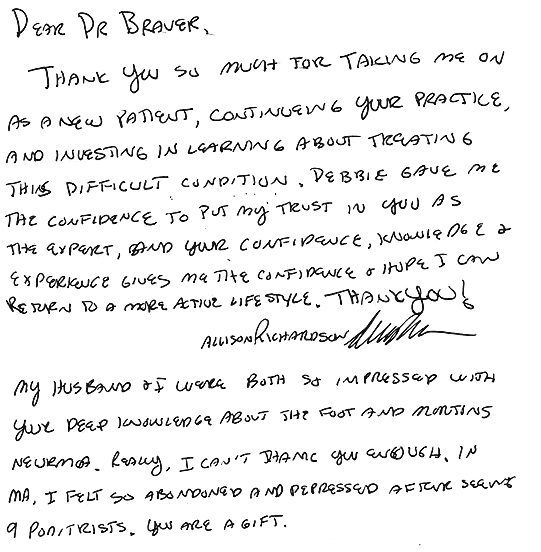 DEAR DR BRAVER,
THANK YOU SO MUCH FOR TAKING ME ON
AS A NEW PATIENT, CONTINUEING YOUR PRACTICE,
AND INVESTING IN LEARNING ABOUT TREATING
THIS DIFFICULT CONDITION. DEBBIE GAVE ME
THE CONFIDENCE TO PUT MY TRUST IN YOU AS
THE EXPERT, AND YOUR CONFIDENCE, KNOWLEDGE &
EXPERIENCE GIVES ME THE CONFIDENCE & HOPE I CAN
RETURN TO A MORE ACTIVE LIFESTYLE. THANK YOU!
ALLISON RICHARDSON
MY HUSBAND & I WERE BOTH SO IMPRESSED WITH
YOUR DEEP KNOWLEDGE ABOUT THE FOOT AND MORTINS
NEURMOA. REALLY, I CAN'T THANK YOU ENOUGH. IN
MA, I FELT SO ABANDONED AND DEPRESSED AFTER SEEING
9 PODITRISTS. YOU ARE A GIFT.